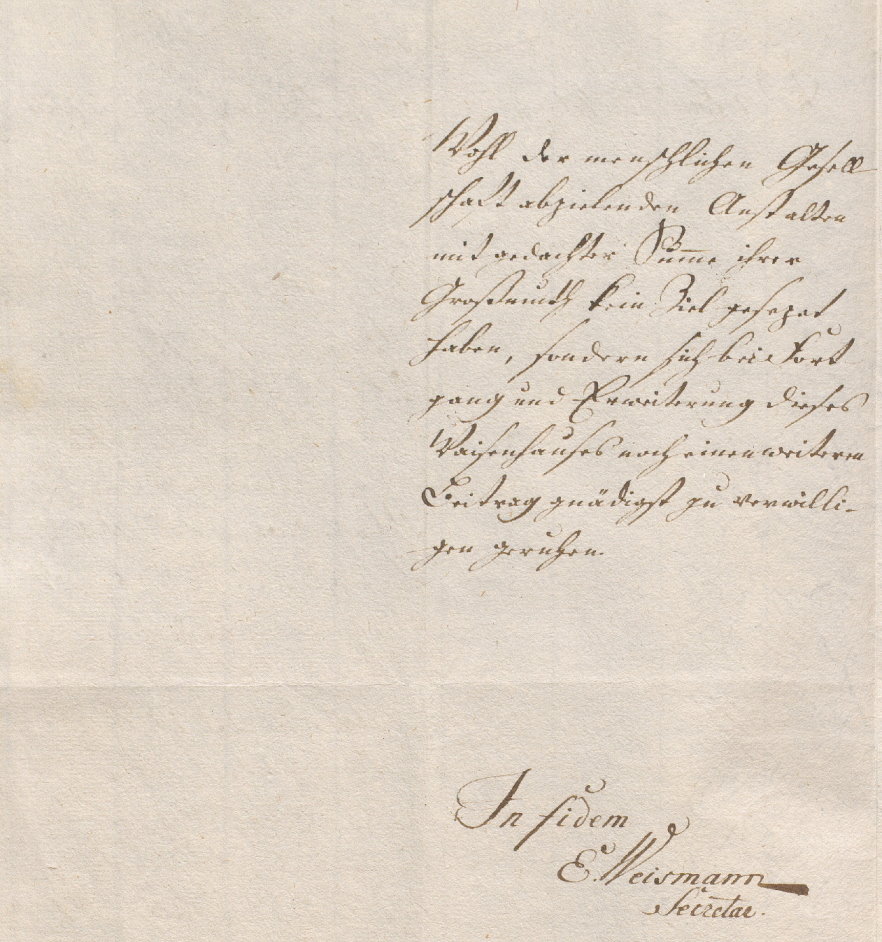 Wohl der menschlichen Gesell-
schaft abzielenden Anstalten
mit gedachter Summe ihrer
Großmuth kein Ziel gesezet
haben, sondern sich bei Fort
gang und Erweiterung dieses
Waisenhauses noch einen weiteren
Beitrag gnädigst zu verwilli-
gen geruhen.
In fidem
E. Weismann
Secretar.